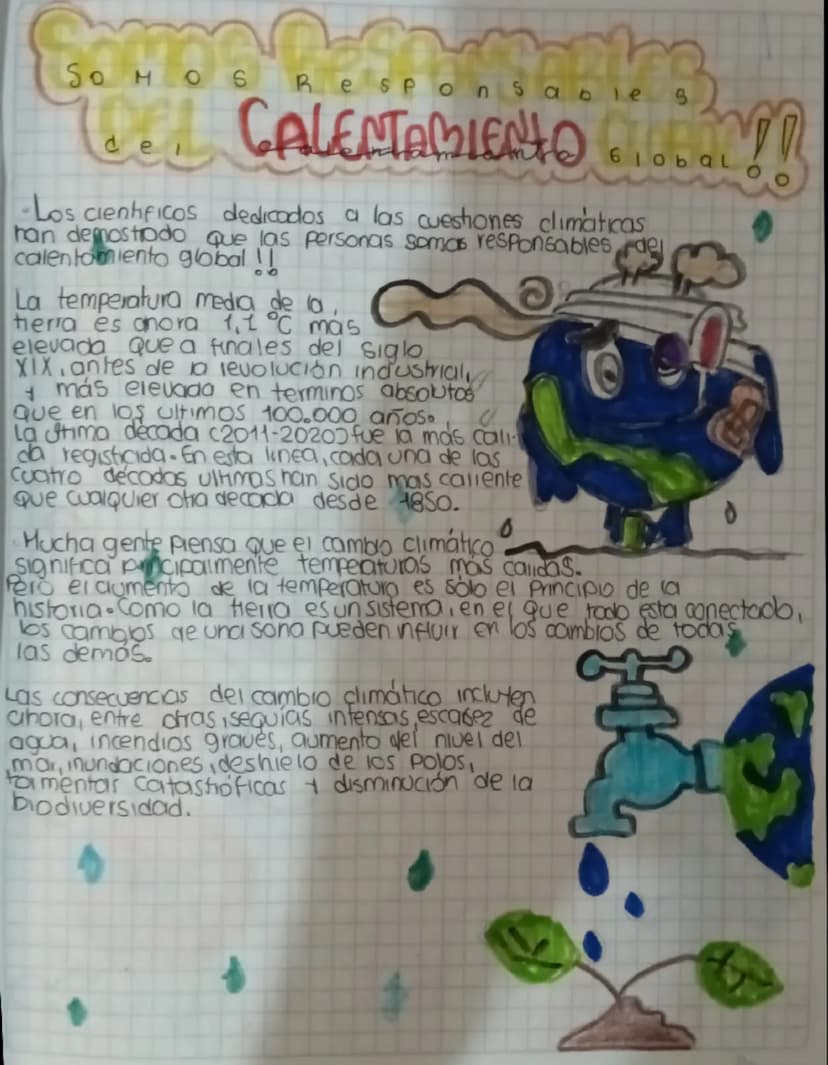 Somos Responsables
del CALENTAMIENTO Global!!
-Los científicos dedicados a las cuestiones climáticas
han demostrado que las personas somos responsables del
calentamiento global!!
La temperatura media de la
tierra es ahora 1,1 °C más
elevada que a finales del siglo
XIX, antes de la revolución industrial,
y más elevada en terminos absolutos
que en los ultimos 100.000 años.
La última década (2011-2020) fue la más cáli-
da registrada. En esta linea, cada una de las
cuatro décadas ultimas han sido mas caliente
que cualquier otra decada desde 1850.
Mucha gente piensa que el cambio climático
significa principalmente temperaturas más calidas.
Pero el aumento de la temperatura es sólo el principio de la
historia. Como la tierra es un sistema, en el que todo esta conectado,
los cambios de una sona pueden influir en los cambios de todas
las demás.
Las consecuencias del cambio climático incluyen
ahora, entre otras, sequias intensas, escasez de
agua, incendios graves, aumento del nivel del
mar, inundaciones, deshielo de los polos,
tormentas catastróficas y disminución de la
biodiversidad.